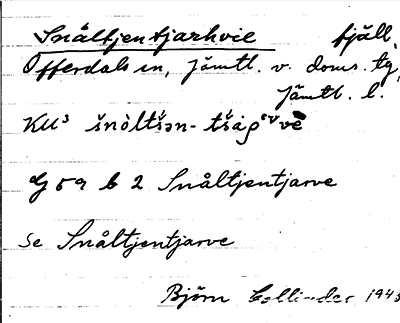 Snåltjentjarhvie fjäll.
Offerdals sn, Jämtl. v. doms. tg,
Jämtl. l.
KU³ šnòltšən-tšap
G 59 b 2 Snåltjentjarve
se Snåltjentjarve
Björn Collinder 1943